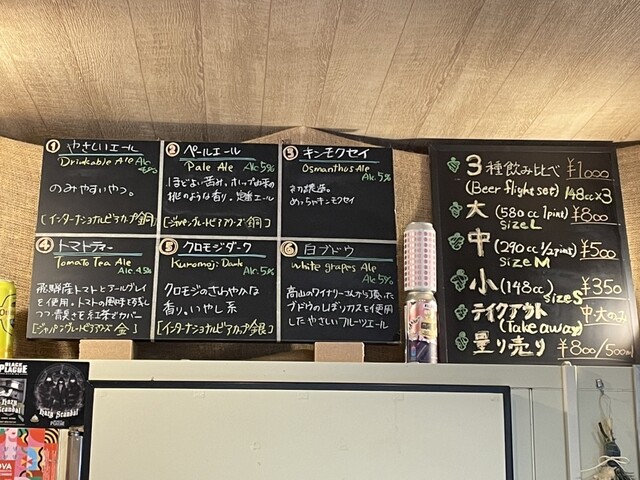 ① やさしいエール
Drinkable Ale Alc
のみやすいやつ。
[インターナショナルビアカップ 銅]
② ペールエール
Pale Ale Alc 5%
ほどよい苦み、ホップ由来の
桃のような香り。定番エール
[ジャパングレートビアアワーズ 銅]
③ キンモクセイ
Osmanthus Ale
Alc 5%
初醸造。
めっちゃキンモクセイ
④ トマトティー
Tomato Tea Ale
Alc 4.5%
飛騨産トマトとアールグレイ
を使用。トマトの風味を
青臭さを紅茶でカバー
[ジャパングレートビアアワーズ 金]
⑤ クロモジダーク
Kuromoji Dark Alc 5%
クロモジのさわやかな
香り。いやし系
[インターナショナルビアカップ 銀]
⑥ 白ブドウ
White grapes Ale
Alc 5%
高山のワイナリーさんから頂いた
ブドウのしぼりカスを使用
したやさしいフルーツエール
3種飲み比べ ¥1000
(Beer flight set) 148cc×3
大 (580cc 1pint) ¥800
Size L
中 (290cc 1/2pint) ¥500
Size M
小 (148cc) Size S ¥350
テイクアウト 中,大のみ
(Take away)
量り売り ¥800/500ml
BLACK
PLAGUE
Hazy Scandal
Hazy Scandal
OVA